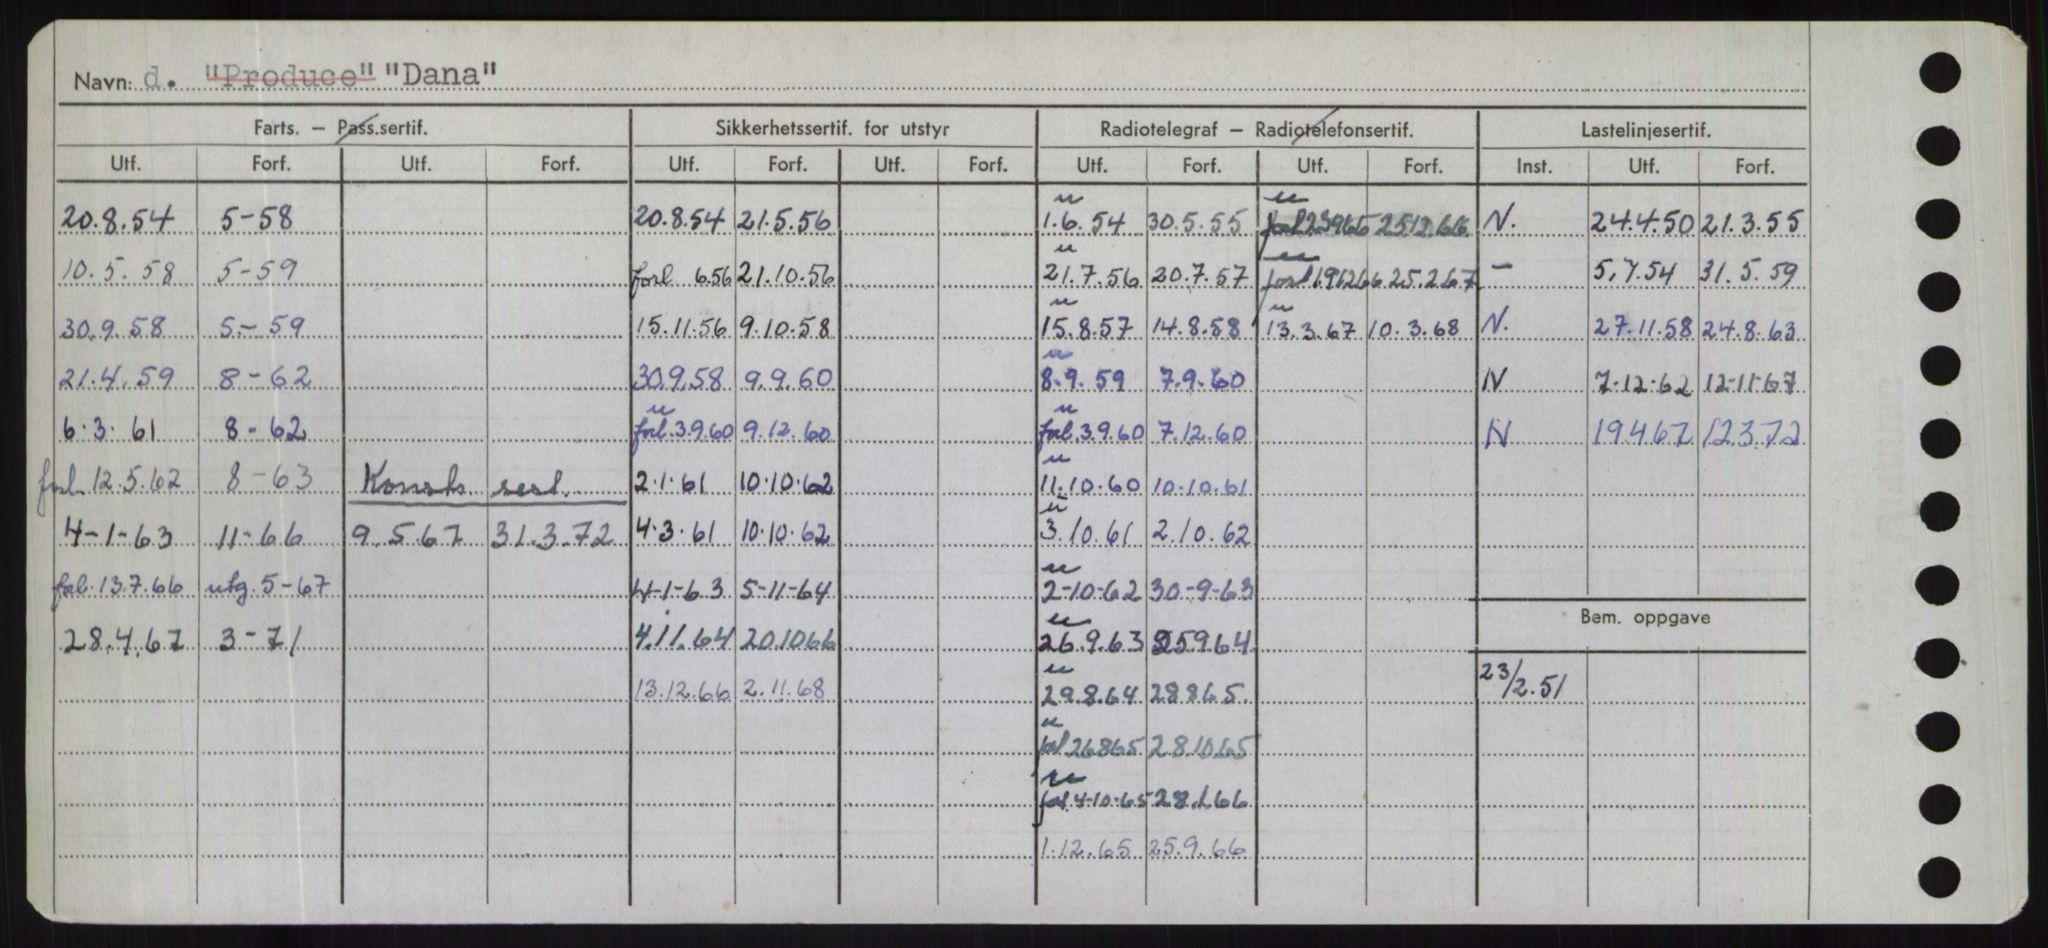 Navn: d. "Produce" "Dana"
Farts. – Pass.sertif. Sikkerhetssertif. for utstyr Radiotelegraf – Radiotelefonsertif. Lastelinjesertif.
Utf. Forf. Utf. Forf. Utf. Forf. Utf. Forf. Utf. Forf. Utf. Forf. Inst. Utf. Forf.
20.8.54 5-58 20.8.54 21.5.56 u 1.6.54 30.5.55 u forl 23965 2512.66 N. 24.4.50 21.3.55
10.5.58 5-59 forl 6.56 21.10.56 u 21.7.56 20.7.57 u forl 191266 25.2.67 – 5.7.54 31.5.59
30.9.58 5-59 15.11.56 9.10.58 u 15.8.57 14.8.58 u 13.3.67 10.3.68 N. 27.11.58 24.8.63
21.4.59 8-62 30.9.58 9.9.60 u 8.9.59 7.9.60 N 7-12-62 12-11-67
6.3.61 8-62 u forl.3.9.60 9.12.60 u forl.3.9.60 7.12.60 N 19.4.67 12.3.72
forl. 12.5.62 8-63 Konstr. sert. 2.1.61 10.10.62 u 11.10.60 10.10.61
4-1-63 11-66 9.5.67 31.3.72 4.3.61 10.10.62 u 3.10.61 2.10.62
forl.13.7.66 utg. 5-67 4-1-63 5-11-64 u 2-10-62 30-9-63
28.4.67 3-71 4.11.64 20.10.66 u 26.9.63 25964
Bem. oppgave
13.12.66 2.11.68 u 29.8.64 28865. 23/2.51
u forl 26865 28.10.65
u forl 4-10-65 28.1.66
1.12.65 25.9.66